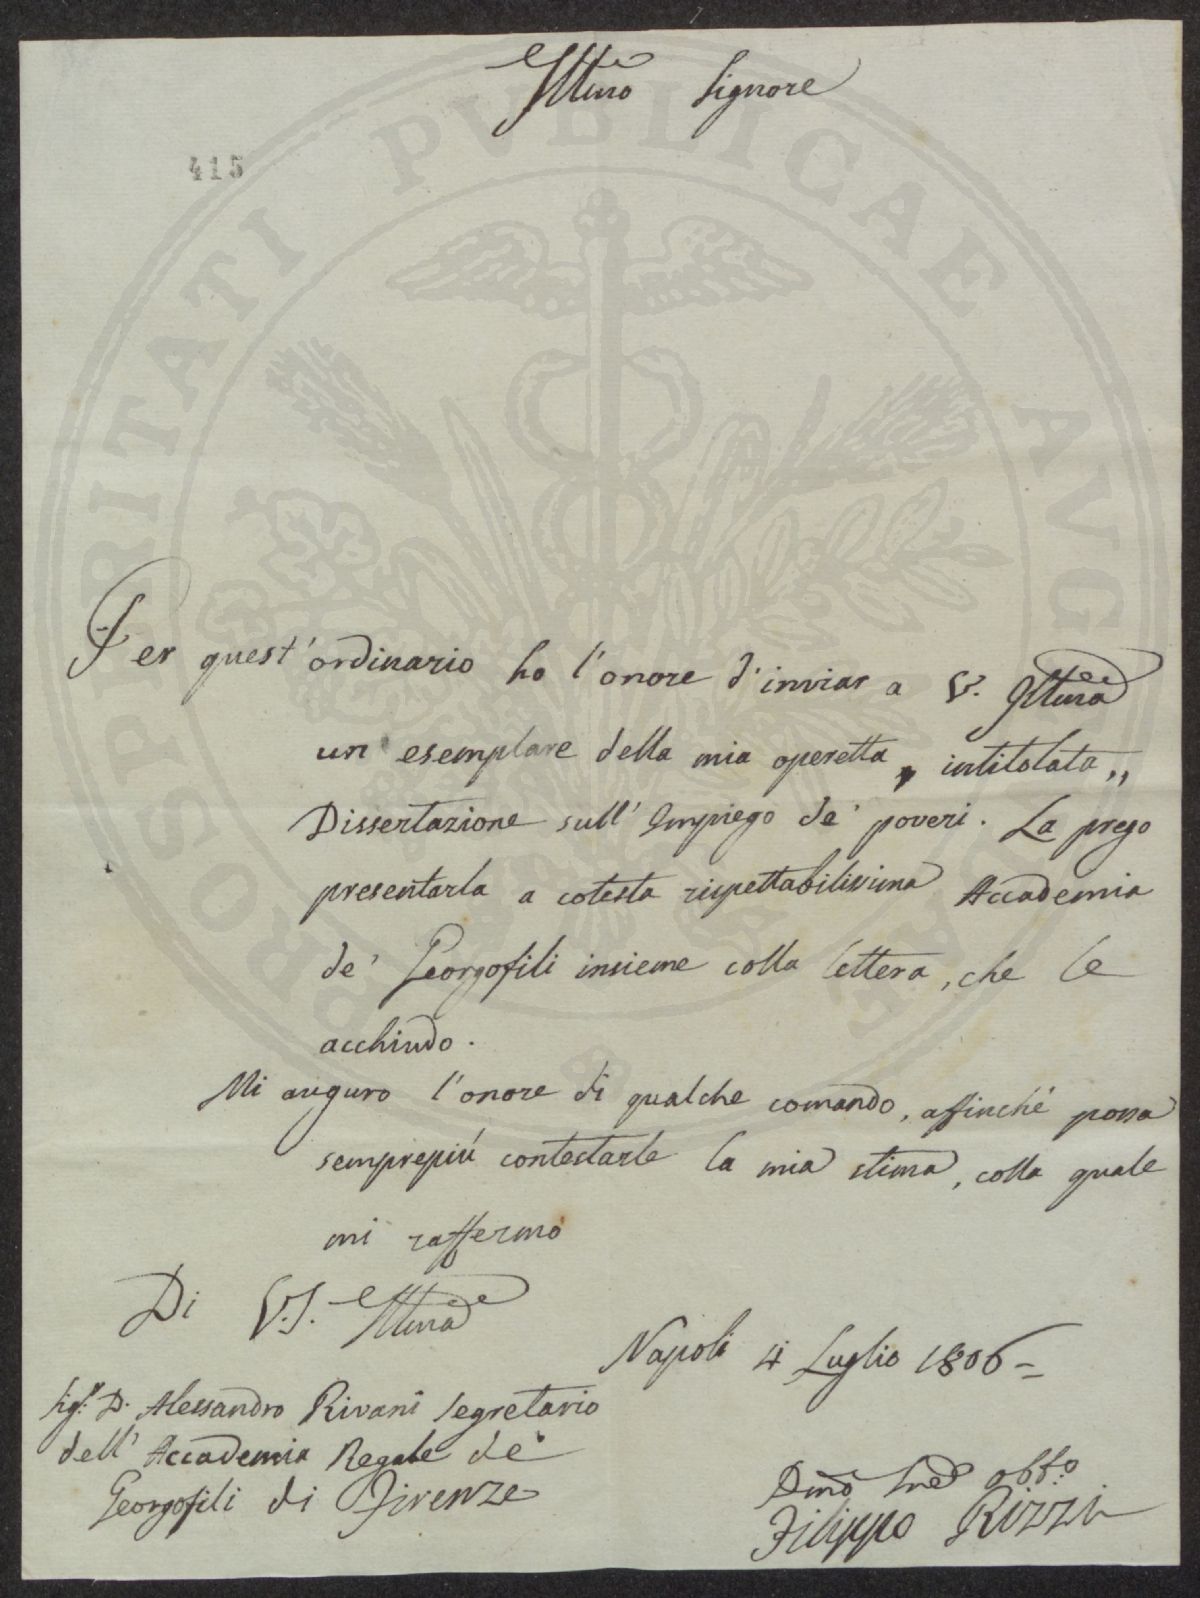 Illmo Signore
415
Per quest'ordinario ho l'onore d'inviar a V. Illma
un esemplare della mia operetta, intitolata „
Dissertazione sull'Impiego de' poveri. La prego
presentarla a cotesta rispettabilissima Accademia
de' Georgofili insieme colla lettera, che le
acchiudo.
Mi auguro l'onore di qualche comando, affinché possa
semprepiú contestarle la mia stima, colla quale
mi raffermo
Di V.S. Illma
Napoli 4 Luglio 1806 -
Sigr. D. Alessandro Rivani Segretario
dell'Accademia Regale de'
Georgofili di Firenze
Dmo Sred obbo
Filippo Rizzi
PROSPERITATI PVBLICAE AVGENDAE